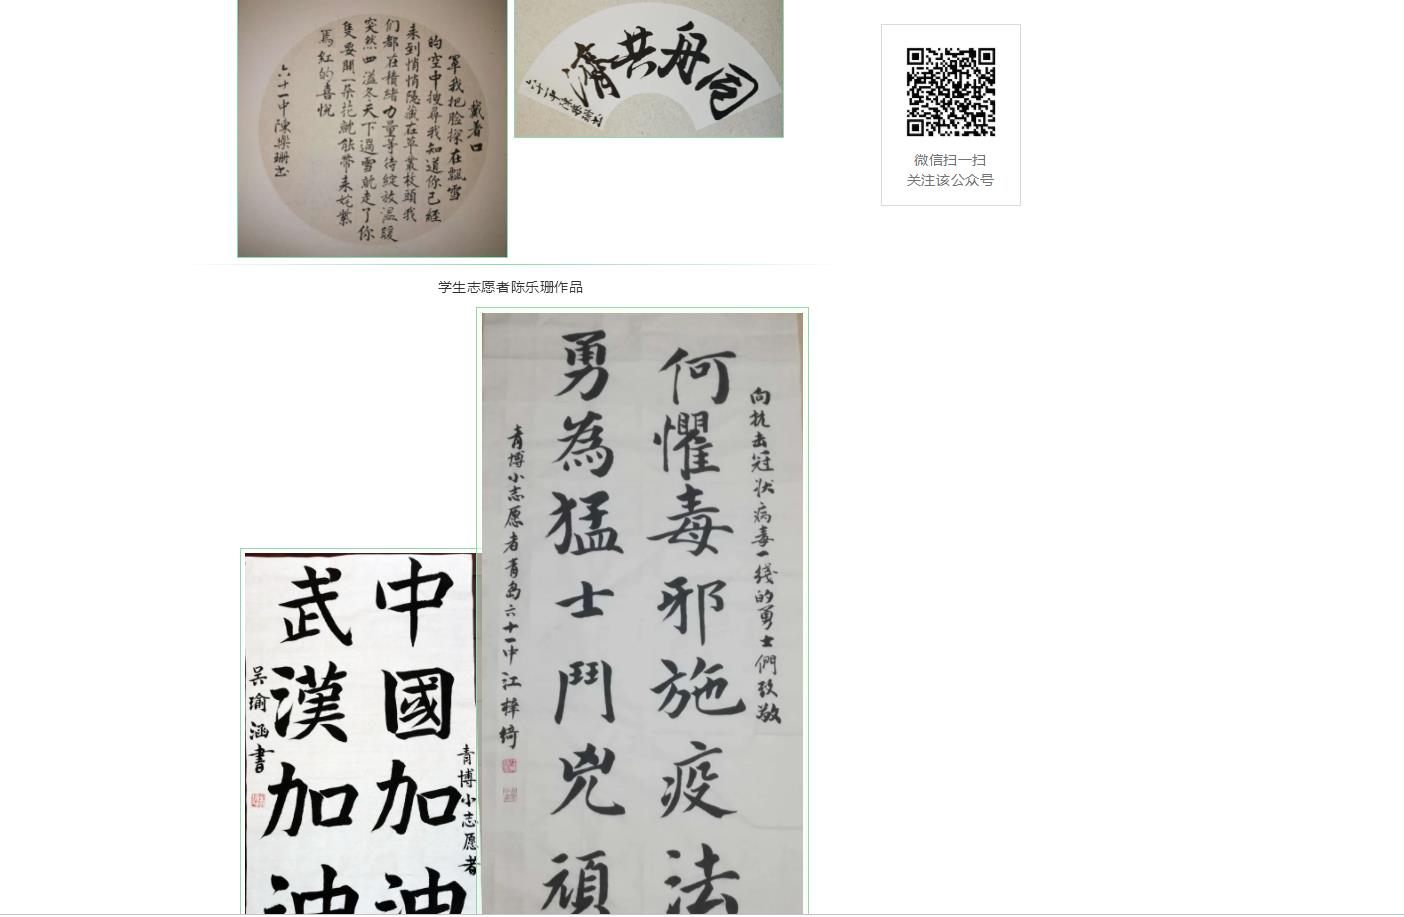 戴着口
罩我把脸探在飄雪
的空中搜尋我知道你已經
来到悄悄隐藏在草叢枝頭我
们都在積緒力量等待綻放温暖
突然四溢冬天下過雪就走了你
隻要開一朵花就能帶来姹紫
嫣紅的喜悦
六十一中陳樂珊书
同舟共濟
六十一中陈乐珊书
微信扫一扫
关注该公众号
学生志愿者陈乐珊作品
向抗击冠状病毒一线的勇士們致敬
何懼毒邪施疫法
勇為猛士鬥兇頑
青博小志愿者青岛六十一中江梓绮
青博小志愿者
中國加油
武漢加油
吴瑜涵書